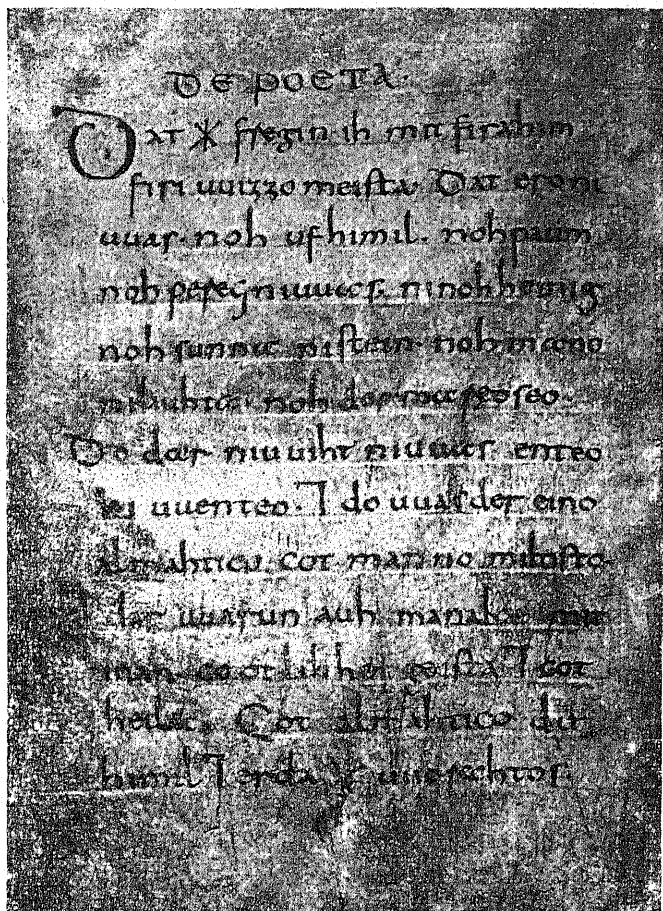 DE POETA.
Dat ᛡ fregin ih mit firahim
firi uuizzo meista. Dat ero ni
uuas. noh ufhimil. noh paum
noh pereg ni uuas. ni nohheinig
noh sunna ni stein. noh mano
ni liuhta. noh der mareo seo.
Do dar niuuiht ni uuas enteo
ni uuenteo. ⁊ do uuas der eino
almahtico cot manno miltisto.
dar uuarun auh manake mit
inan. cootlihhe geista. ⁊ cot
heilac. Cot almahtico du
himil ⁊ erda ᛡ uuorahtos.